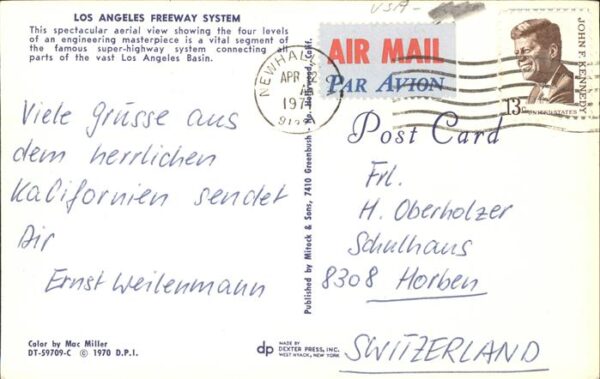 LOS ANGELES FREEWAY SYSTEM
This spectacular aerial view showing the four levels
of an engineering masterpiece is a vital segment of
the famous super-highway system connecting all
parts of the vast Los Angeles Basin.
Viele Grüsse aus
dem herrlichen
Kalifornien sendet
Dir
Ernst Weilenmann
Color by Mac Miller
DT-59709-C © 1970 D.P.I.
Published by Mitock & Sons, 7410 Greenbush - No. Hollywood, Calif.
dp
MADE BY
DEXTER PRESS, INC.
WEST NYACK, NEW YORK
USA
NEWHALL
APR
197
AIR MAIL
PAR AVION
JOHN F. KENNEDY
13c
UNITED STATES
Post Card
Frl.
H. Oberholzer
Schulhaus
8308 Horben
SWITZERLAND